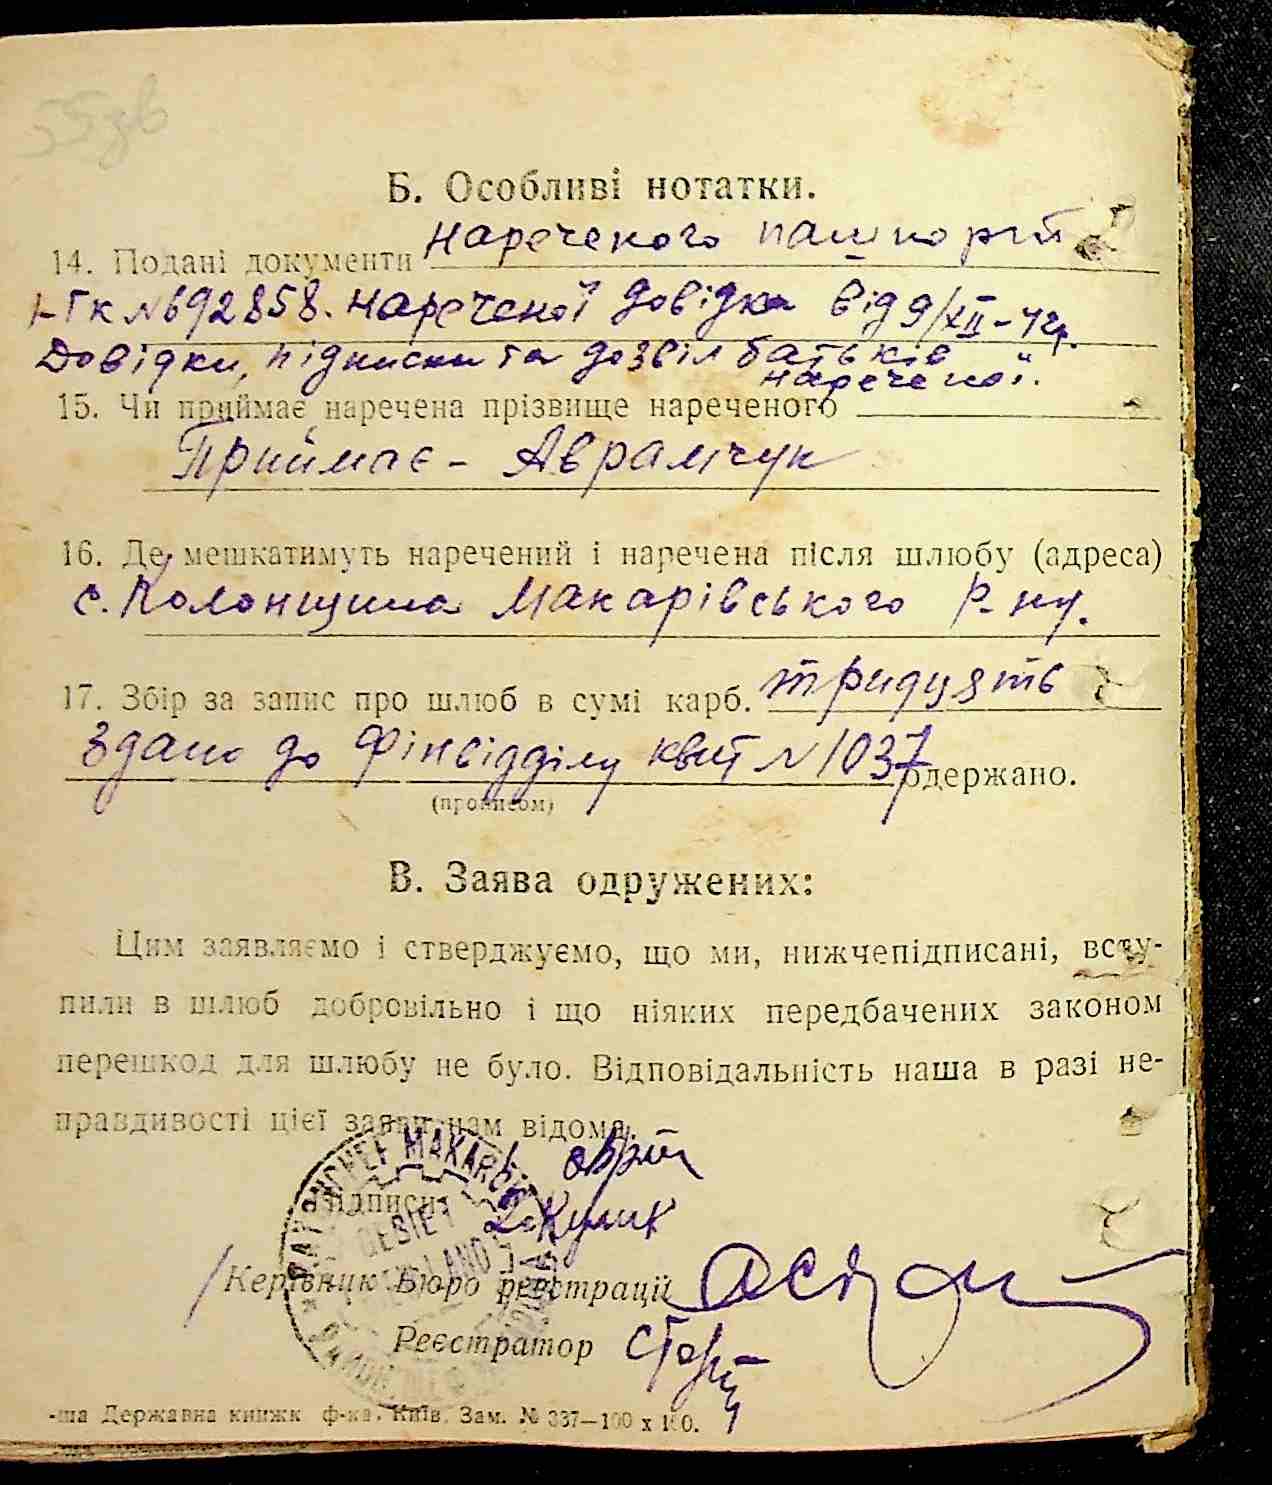 Б. Особливі нотатки.
14. Подані документи Нареченого пашпорт
№ 692858. Нареченої довідка від 9/XII-42р.
Довідки, підписки та дозвіл батьків
нареченої.
15. Чи приймає наречена прізвище нареченого
Приймає - Аврамчук
16. Де мешкатимуть наречений і наречена після шлюбу (адреса)
с. Колонщина Макарівського р-ну.
17. Збір за запис про шлюб в сумі карб. тридцять
Здано до Фінвідділу квит № 1037 одержано.
(прописом)
В. Заява одружених:
Цим заявляємо і стверджуємо, що ми, нижчепідписані, всту-
пили в шлюб добровільно і що ніяких передбачених законом
перешкод для шлюбу не було. Відповідальність наша в разі не-
правдивості цієї заяви нам відома.
RAYONCHEF MAKARO
Підписи:
2. Кулик
Керівник Бюро реєстрації
Реєстратор
-ша Державна книжк ф-ка. Київ. Зам. № 337—100 х 100.